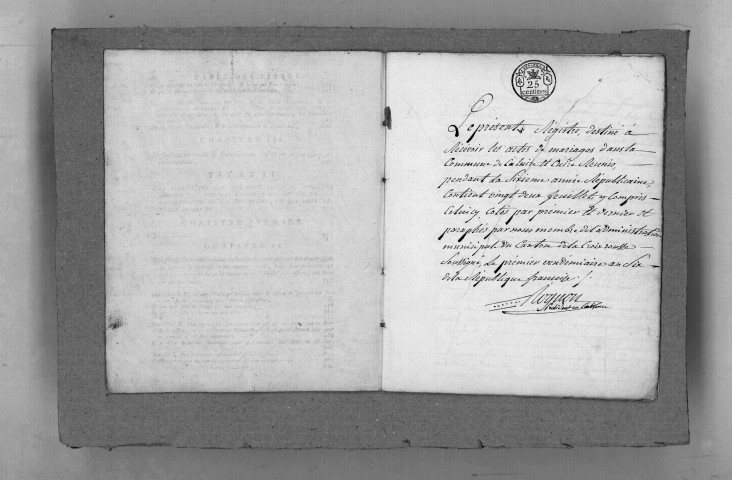 25
centimes
Le présent Régistre, destiné à
Recevoir les actes de mariages dans la
Commune de Caluire et Cuire Réunie,
pendant la Sixieme année Républicaine,
Contient vingt deux feuillets y Compris
Celuicy cotés par premier et dernier et
paraphés par nous membre de l'administration
municipale du Canton de la Croix rousse
Soussigné, Le premier vendemiaire an Six
de la République francoise /.